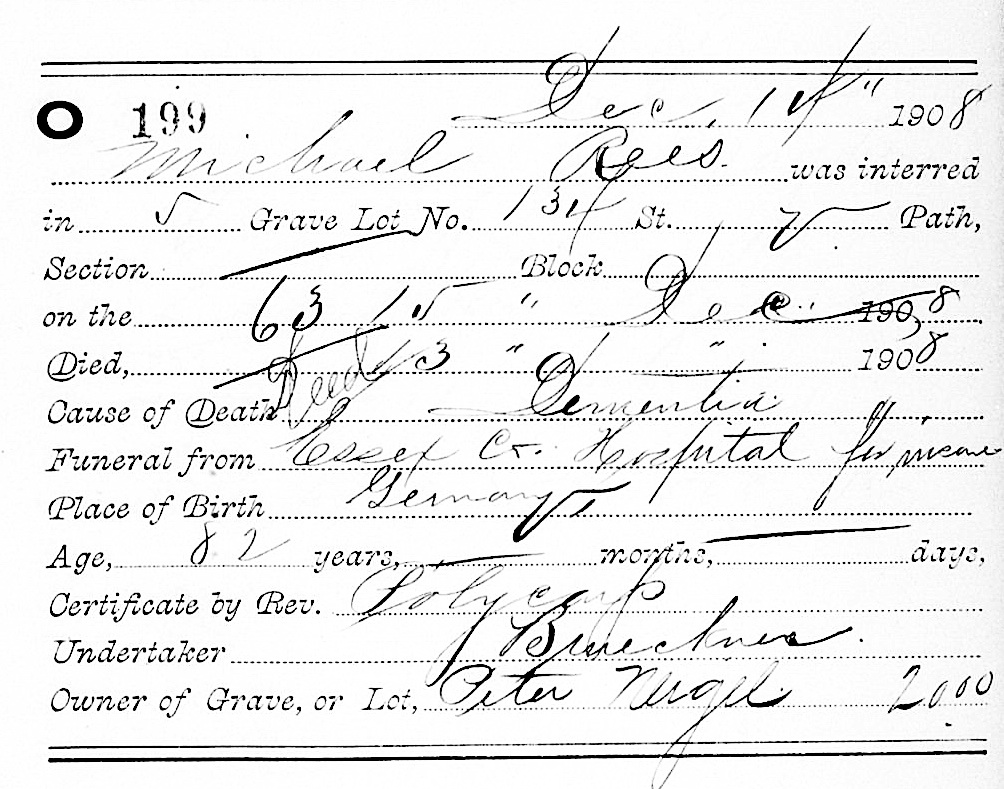 O 199 Dec. 14" 1908
Michael Rees was interred
in Grave Lot No. 134 St. Path,
Section Block
on the 63 15 " Dec 1908
Died, 13 " " 1908
Cause of Death Dementia
Funeral from Essex Co. Hospital for insane
Place of Birth Germany
Age, 82 years, months, days,
Certificate by Rev. Polycarp
Undertaker Brueckner
Owner of Grave, or Lot, Peter 20.00